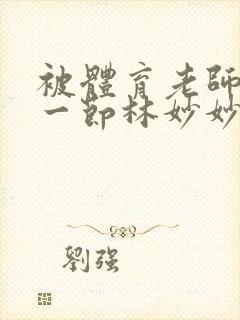 被體育老師
一節林妙妙
劉强